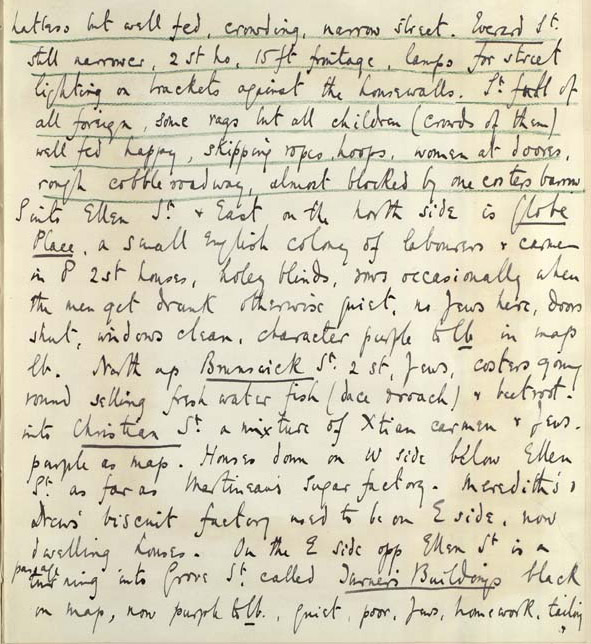 hatless but well fed, crowding, narrow street. Everard St.
still narrower, 2 st ho, 15 ft frontage, lamps for street
lighting on brackets against the housewalls. St full of
all foreign, some rags but all children (crowds of them)
well fed happy, skipping ropes, hoops, women at doors,
rough cobble roadway, almost blocked by one costers barrow
S into Ellen St & East on the north side is Globe
Place, a small English colony of labourers & carmen
in 8 2 st houses, holey blinds, rows occasionally when
the men get drunk otherwise quiet, no Jews here, doors
shut, windows clean, character purple to lb in map
lb. North up Brunswick St. 2 st, Jews, costers going
round selling fresh water fish (dace & roach) & beetroot.
into Christian St a mixture of Xtian carmen & Jews.
purple as map. Houses down on W side below Ellen
St as far as Martineau's sugar factory. Meredith's &
Drews' biscuit factory used to be on E side, now
dwelling houses. On the E side opp Ellen St is a
passage
turning into Grove St. called Turner's Buildings black
on map, now purple to lb., quiet, poor, Jews, homework, tailoring